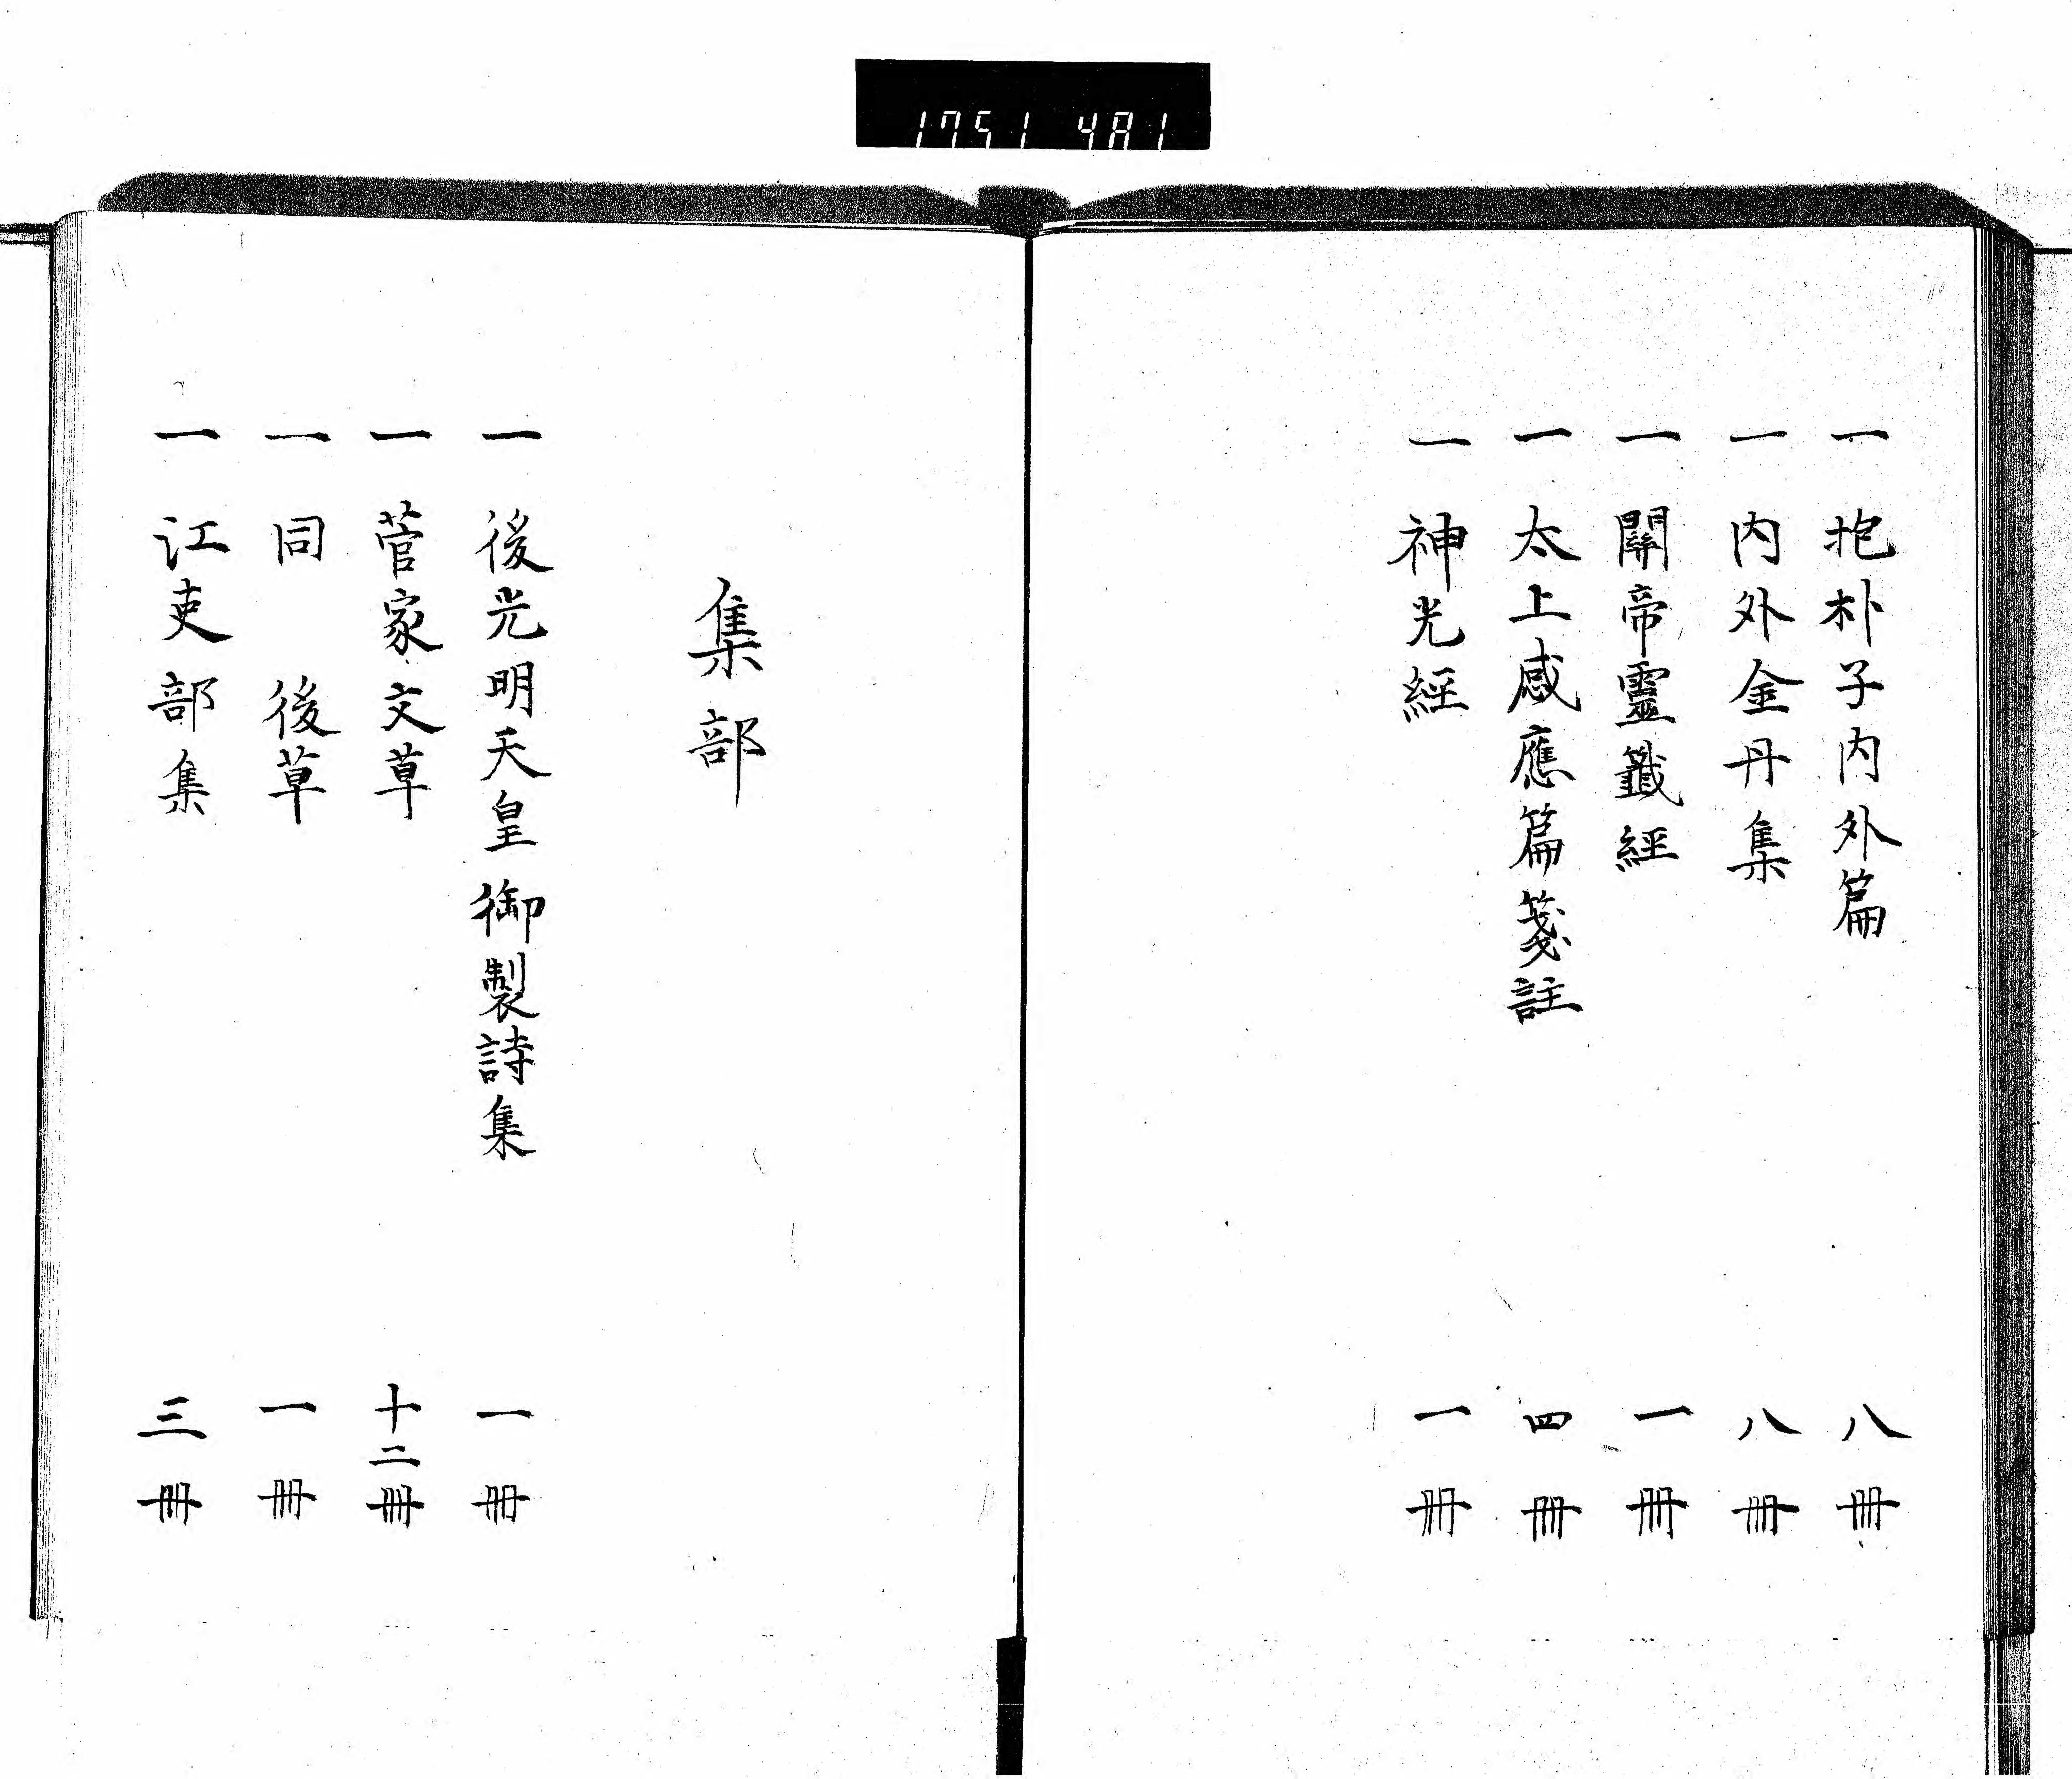 1751 481
一 抱朴子内外篇 八冊
一 内外金丹集 八冊
一 關帝靈籤經 一冊
一 太上感應篇箋註 四冊
一 神光經 一冊
集部
一 後光明天皇御製詩集 一冊
一 菅家文草 十二冊
一 同 後草 一冊
一 江吏部集 三冊